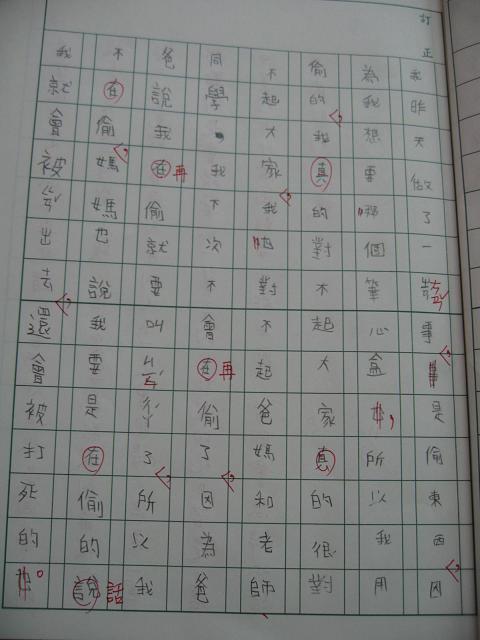 訂正
我昨天做了一事,是偷東西,因
為我想要那個筆心盒,所以我用
偷的,我真的對不起大家真的很對
不起大家,我對不起爸媽和老師
同學,我下次不會在再偷了,因為爸
爸說我在再偷就要叫了,所以我
不在偷,媽媽也說我要是在偷的說話
我就會被ㄍㄢˇ出去,還會被打死的。